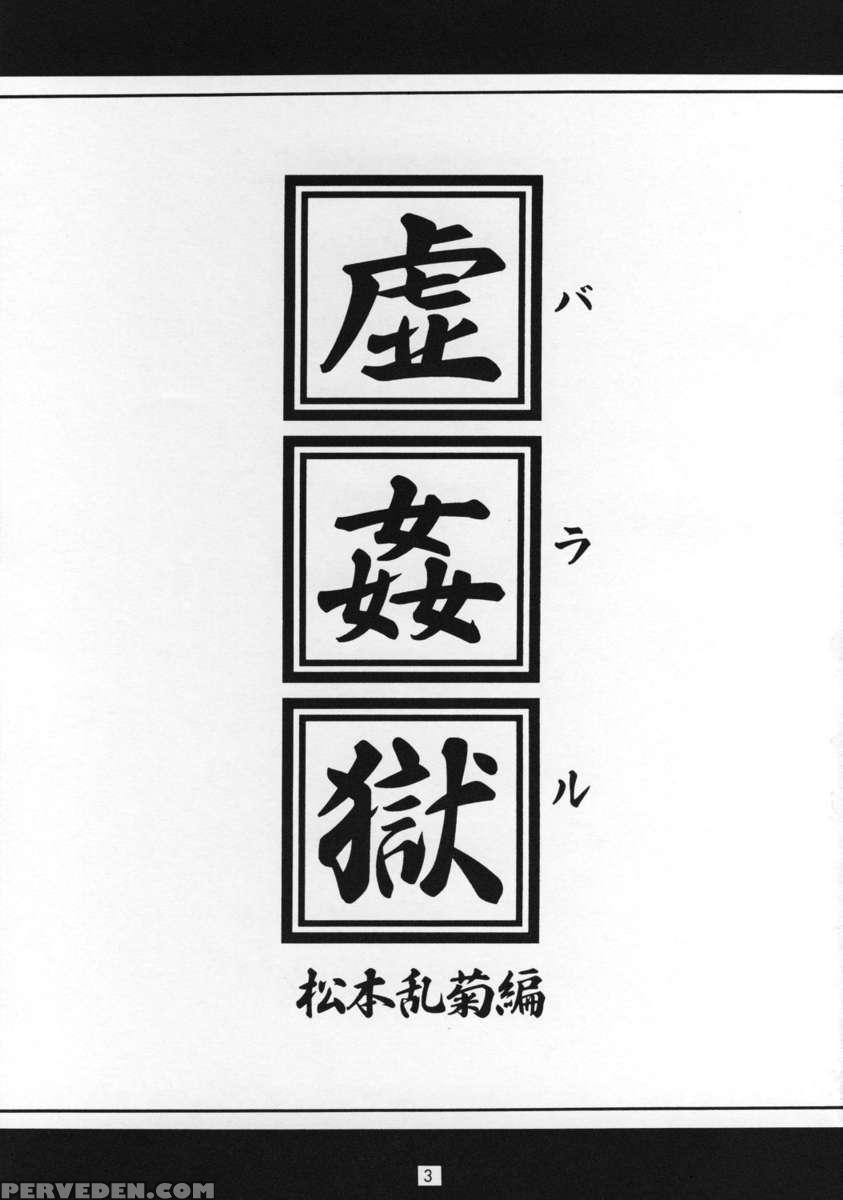 虚姦獄
バラル
松本乱菊編
3
PERVEDEN.COM